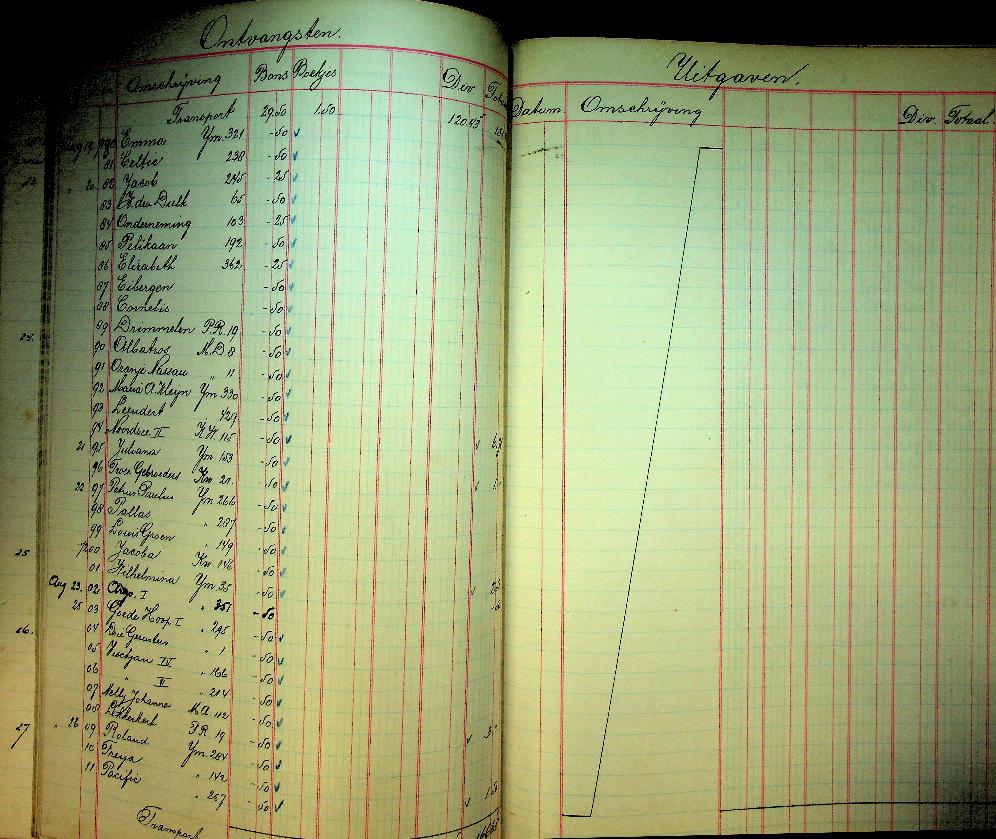 Ontvangsten.
Omschrijving Bons Boekjes Div. Totaal
Transport 29.50 1.50 120.43
Aug 19. Emma Ym. 321 -.50
81 Celtic 238 -.50
" 20. 82 Jacob 245 -.25
83 65 -.50
84 Onderneming 103 -.25
85 Pelikaan 192 -.50
86 Elizabeth 362 -.25
87 Eibergen -.50
88 Cornelis -.50
89 Drimmelen P.R. 19 -.50
90 Albatros M.D. 8 -.50
91 Oranje Nassau " 11 -.50
92 Maria A. Kleyn Ym. 330 -.50
93 Leendert 429 -.50
94 Noordzee II K.W. 115 -.50
21 95 Juliana Ym. 153 -.50
96 Twee Gebroeders Kw. 21. -.50
22 97 Petrus Paulus Ym 266 -.50
98 Pallas " 287 -.50
99 " 149 -.50
7200 Jacoba Kw. 146 -.50
01 Wilhelmina Ym. 35 -.50
Aug 23. 02 Argo. I " 351 -.50
25 03 Goede Hoop I " 295 -.50
04 " 1 -.50
05 IV " 166 -.50
06 " II " 214 -.50
07 Nelly Johanna M.A. 112 -.50
08 Lekkerkerk P.R. 19 -.50
" 26 09 Roland Ym. 284 -.50
10 Freya " 142 -.50
11 Pacific " 257 -.50
Transport
23.
24.
25
26.
27
Uitgaven.
Datum Omschrijving Div. Totaal